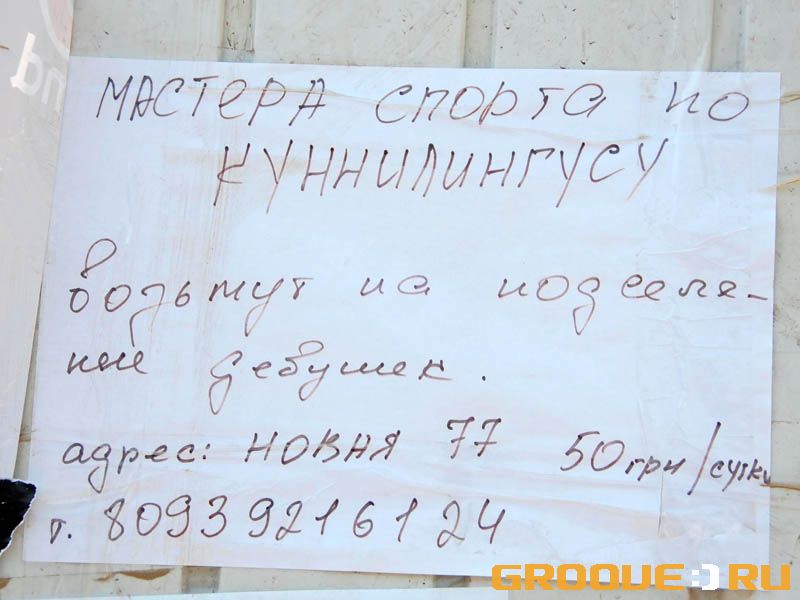 МАСТЕРА спорта по
КУННИЛИНГУСУ
возьмут на подселе-
ние девушек.
адрес: НОВАЯ 77 50 грн/сутки
т. 80939216124
GROOVE:)RU